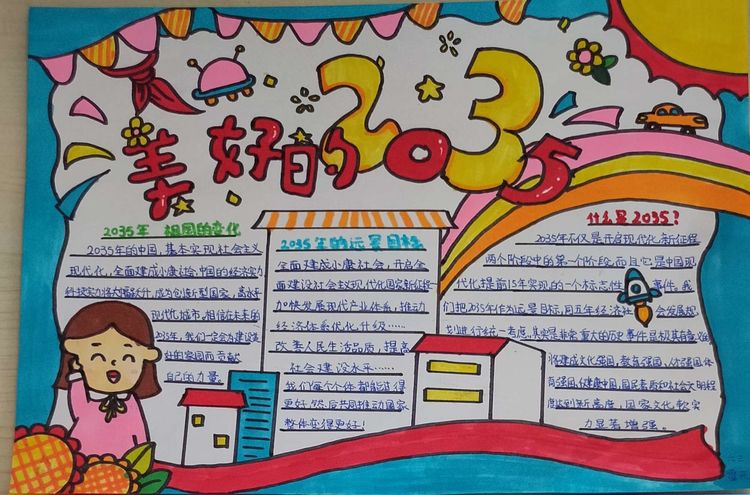 美好的2035
2035年 祖国的变化
2035年的中国,基本实现社会主义
现代化,全面建成小康社会,中国的经济实力
科技实力将大幅跃升,成为创新型国家,
现代城市,相信在未来的
2035年,我们一定会为建设
的家园而贡献
自己的力量。
2035年的远景目标
全面建成小康社会,开启全
面建设社会主义现代化国家新征程
加快发展现代产业体系,推动
经济体系优化升级……
改善人民生活品质,提高
社会建设水平……
我们每个个体都能活得
更好,然后共同推动国家
整体变得更好!
什么是2035?
2035年不仅是开启现代化新征程
两个阶段中的第一个阶段,而且它是中国现
代化提前15年实现的一个标志性事件。我
们把2035年作为远景目标,同五年经济社会发展规
划进行统一考虑,
将建成文化强国、教育强国、人才强国、体
育强国、健康中国,国民素质和社会文明程
度达到新高度,国家文化软实
力显著增强。